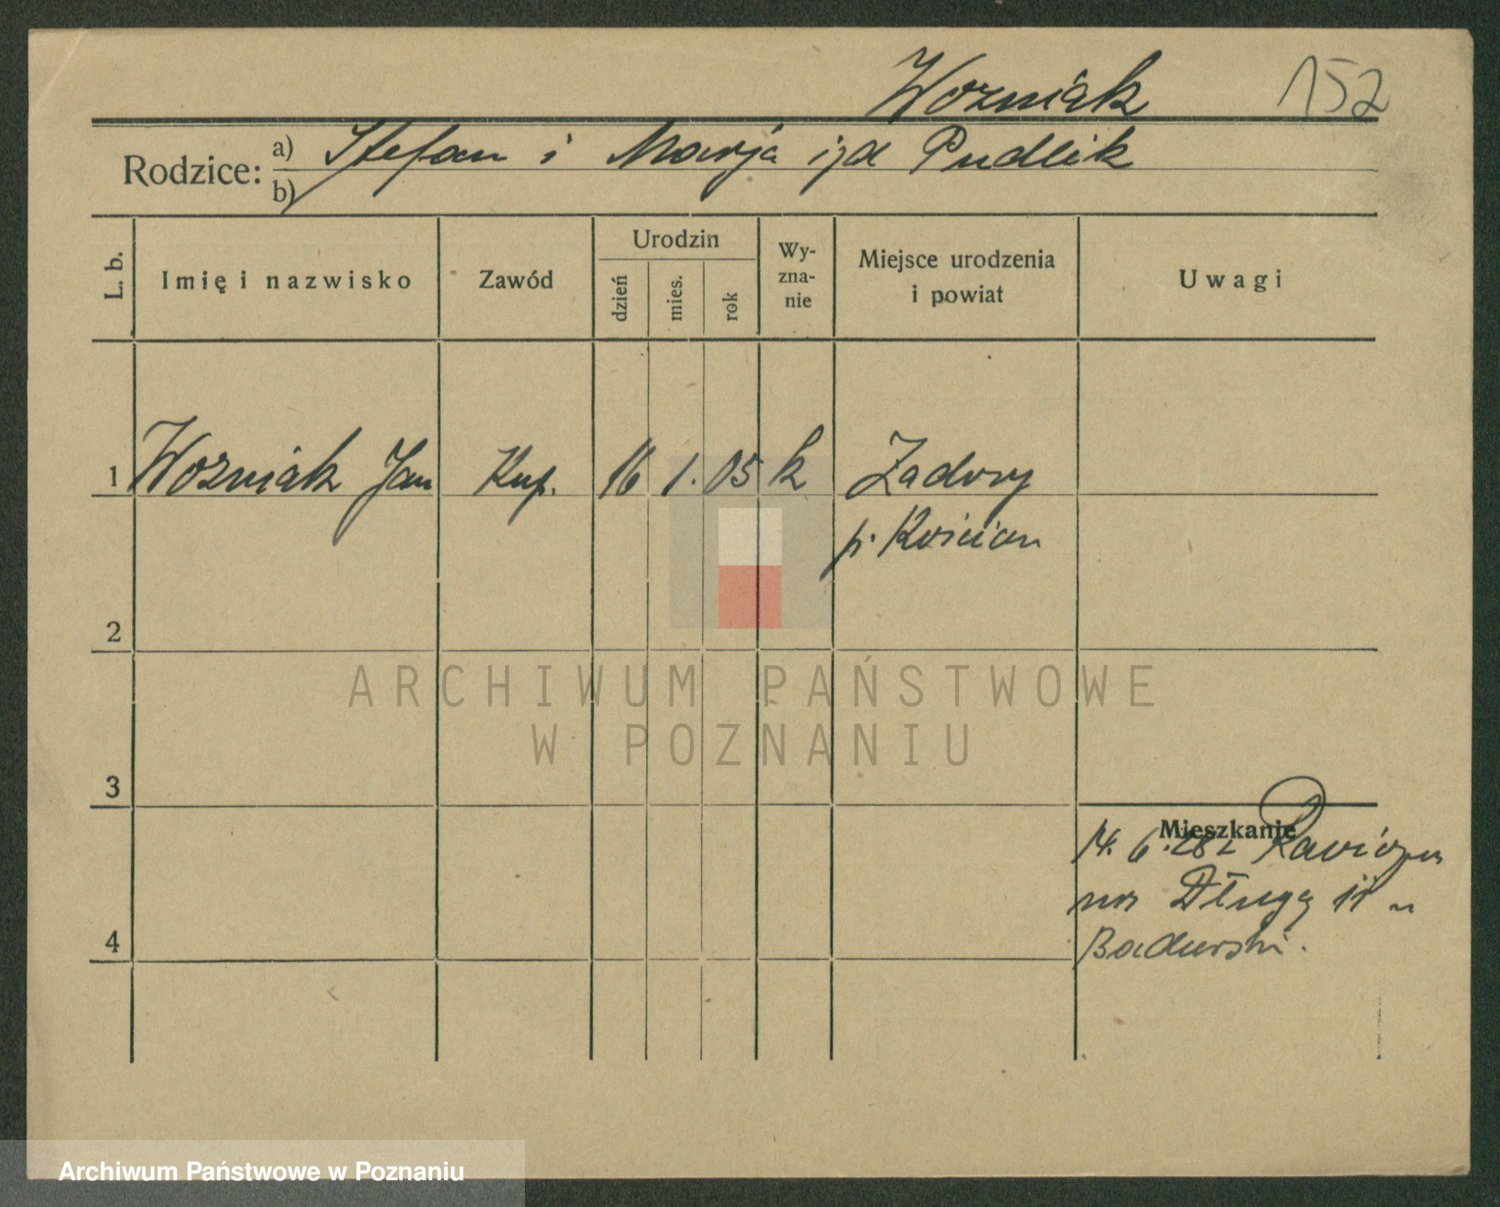 Wozniak 152
Rodzice: a) Stefan i Marja izd Pudlik
b)
L. b. Imię i nazwisko Zawód Urodzin dzień mies. rok Wy-zna-nie Miejsce urodzenia i powiat Uwagi
1 Wozniak Jan Kup. 16 1. 05 k Zadory
p. Kościan
2
ARCHIWUM PAŃSTWOWE
W POZNANIU
3
Mieszkanie
14. 6. 28 z
na Długą 11
Badurski.
4
Archiwum Państwowe w Poznaniu